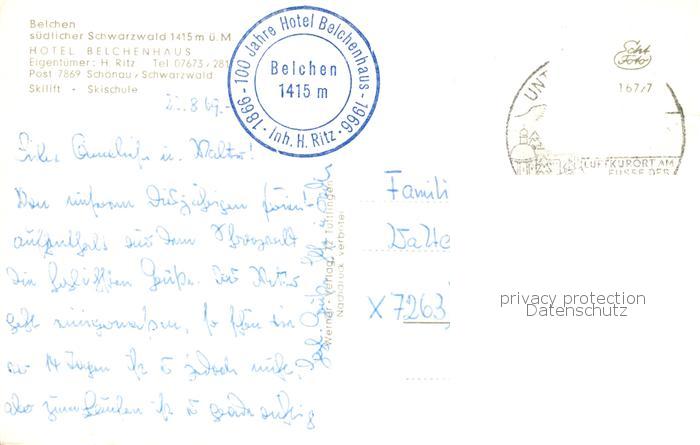 Belchen
südlicher Schwarzwald 1415 m ü. M.
HOTEL BELCHENHAUS
Eigentümer: H. Ritz Tel 07673/281
Post 7869 Schönau/Schwarzwald
Skilift - Skischule
1866 - 100 Jahre Hotel Belchenhaus - 1966
Inh. H. Ritz
Belchen
1415 m
Echt
Foto
167/7
UNT
LUFTKURORT AM
FUSSE DES
8.69.
Liebe u. Walter!
Von unserem diesjährigen Ferien-
aufenthalt aus dem Schwarzwald
die herzlichsten Grüße. Das Wetter
geht einigermaßen, so schön wie
vor 14 Tagen ist es jedoch nicht,
aber zum Laufen ist es gerade richtig
Werner - Verlag, Tuttlingen
Nachdruck verboten
Famili
Walte
X 7263
privacy protection
Datenschutz